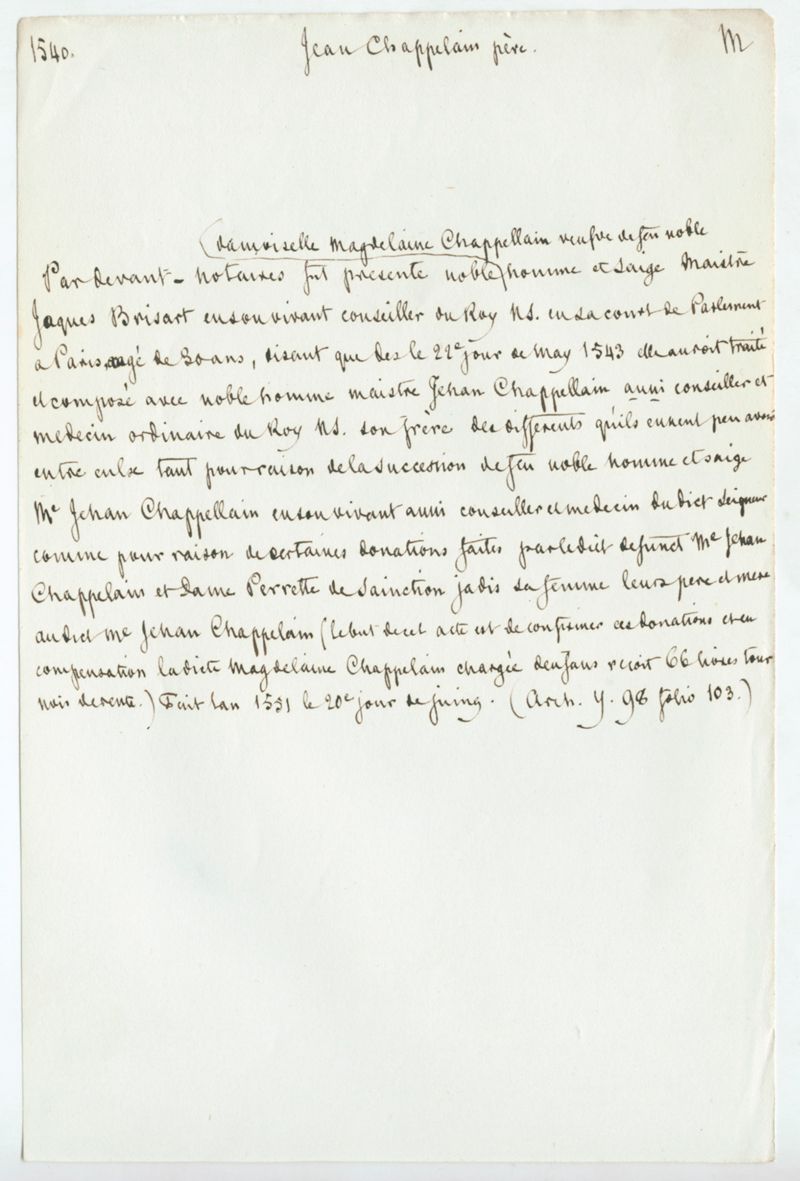 1540. Jean Chappelain père. M
(damoiselle Magdelaine Chappellain veufve de feu noble
Par devant - notaires fut presente noble) homme et saige Maistre
Jaques Brisart en son vivant conseiller du Roy NS. en sa court de Parlement
a Paris, aagé de 30 ans, disant que des le 22e jour de May 1543 elle auroit traité
et composé avec noble homme maistre Jehan Chappellain aussi conseiller et
medecin ordinaire du Roy NS. son frère des differents qu'ils eussent peu avoir
entre eulx tant pour raison de la succession de feu noble homme et saige
Me Jehan Chappellain en son vivant aussi conseiller et medecin du dict Seigneur
comme pour raison de certaines donations faites par le dict defunct Me Jehan
Chappelain et Dame Perrette de Sainction jadis sa femme leurs pere et mere
au dict Me Jehan Chappelain (le but de cet acte est de confirmer ces donations et en
compensation la dicte Magdelaine Chappelain chargée denfans reçoit 66 livres tour
nois de rente.) Fait lan 1551 le 20e jour de juing. (Arch. Y. 98 folio 103.)